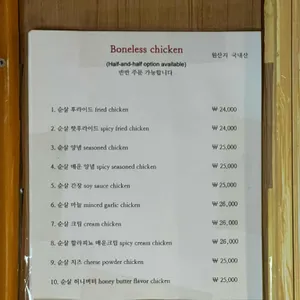 Boneless chicken
원산지 국내산
(Half-and-half option available)
반반 주문 가능합니다
1. 순살 후라이드 fried chicken ₩ 24,000
2. 순살 핫후라이드 spicy fried chicken ₩ 24,000
3. 순살 양념 seasoned chicken ₩ 25,000
4. 순살 매운 양념 spicy seasoned chicken ₩ 25,000
5. 순살 간장 soy sauce chicken ₩ 25,000
6. 순살 마늘 minced garlic chicken ₩ 26,000
7. 순살 크림 cream chicken ₩ 26,000
8. 순살 할라피뇨 매운크림 spicy cream chicken ₩ 26,000
9. 순살 치즈 cheese powder chicken ₩ 25,000
10. 순살 허니버터 honey butter flavor chicken ₩ 25,000